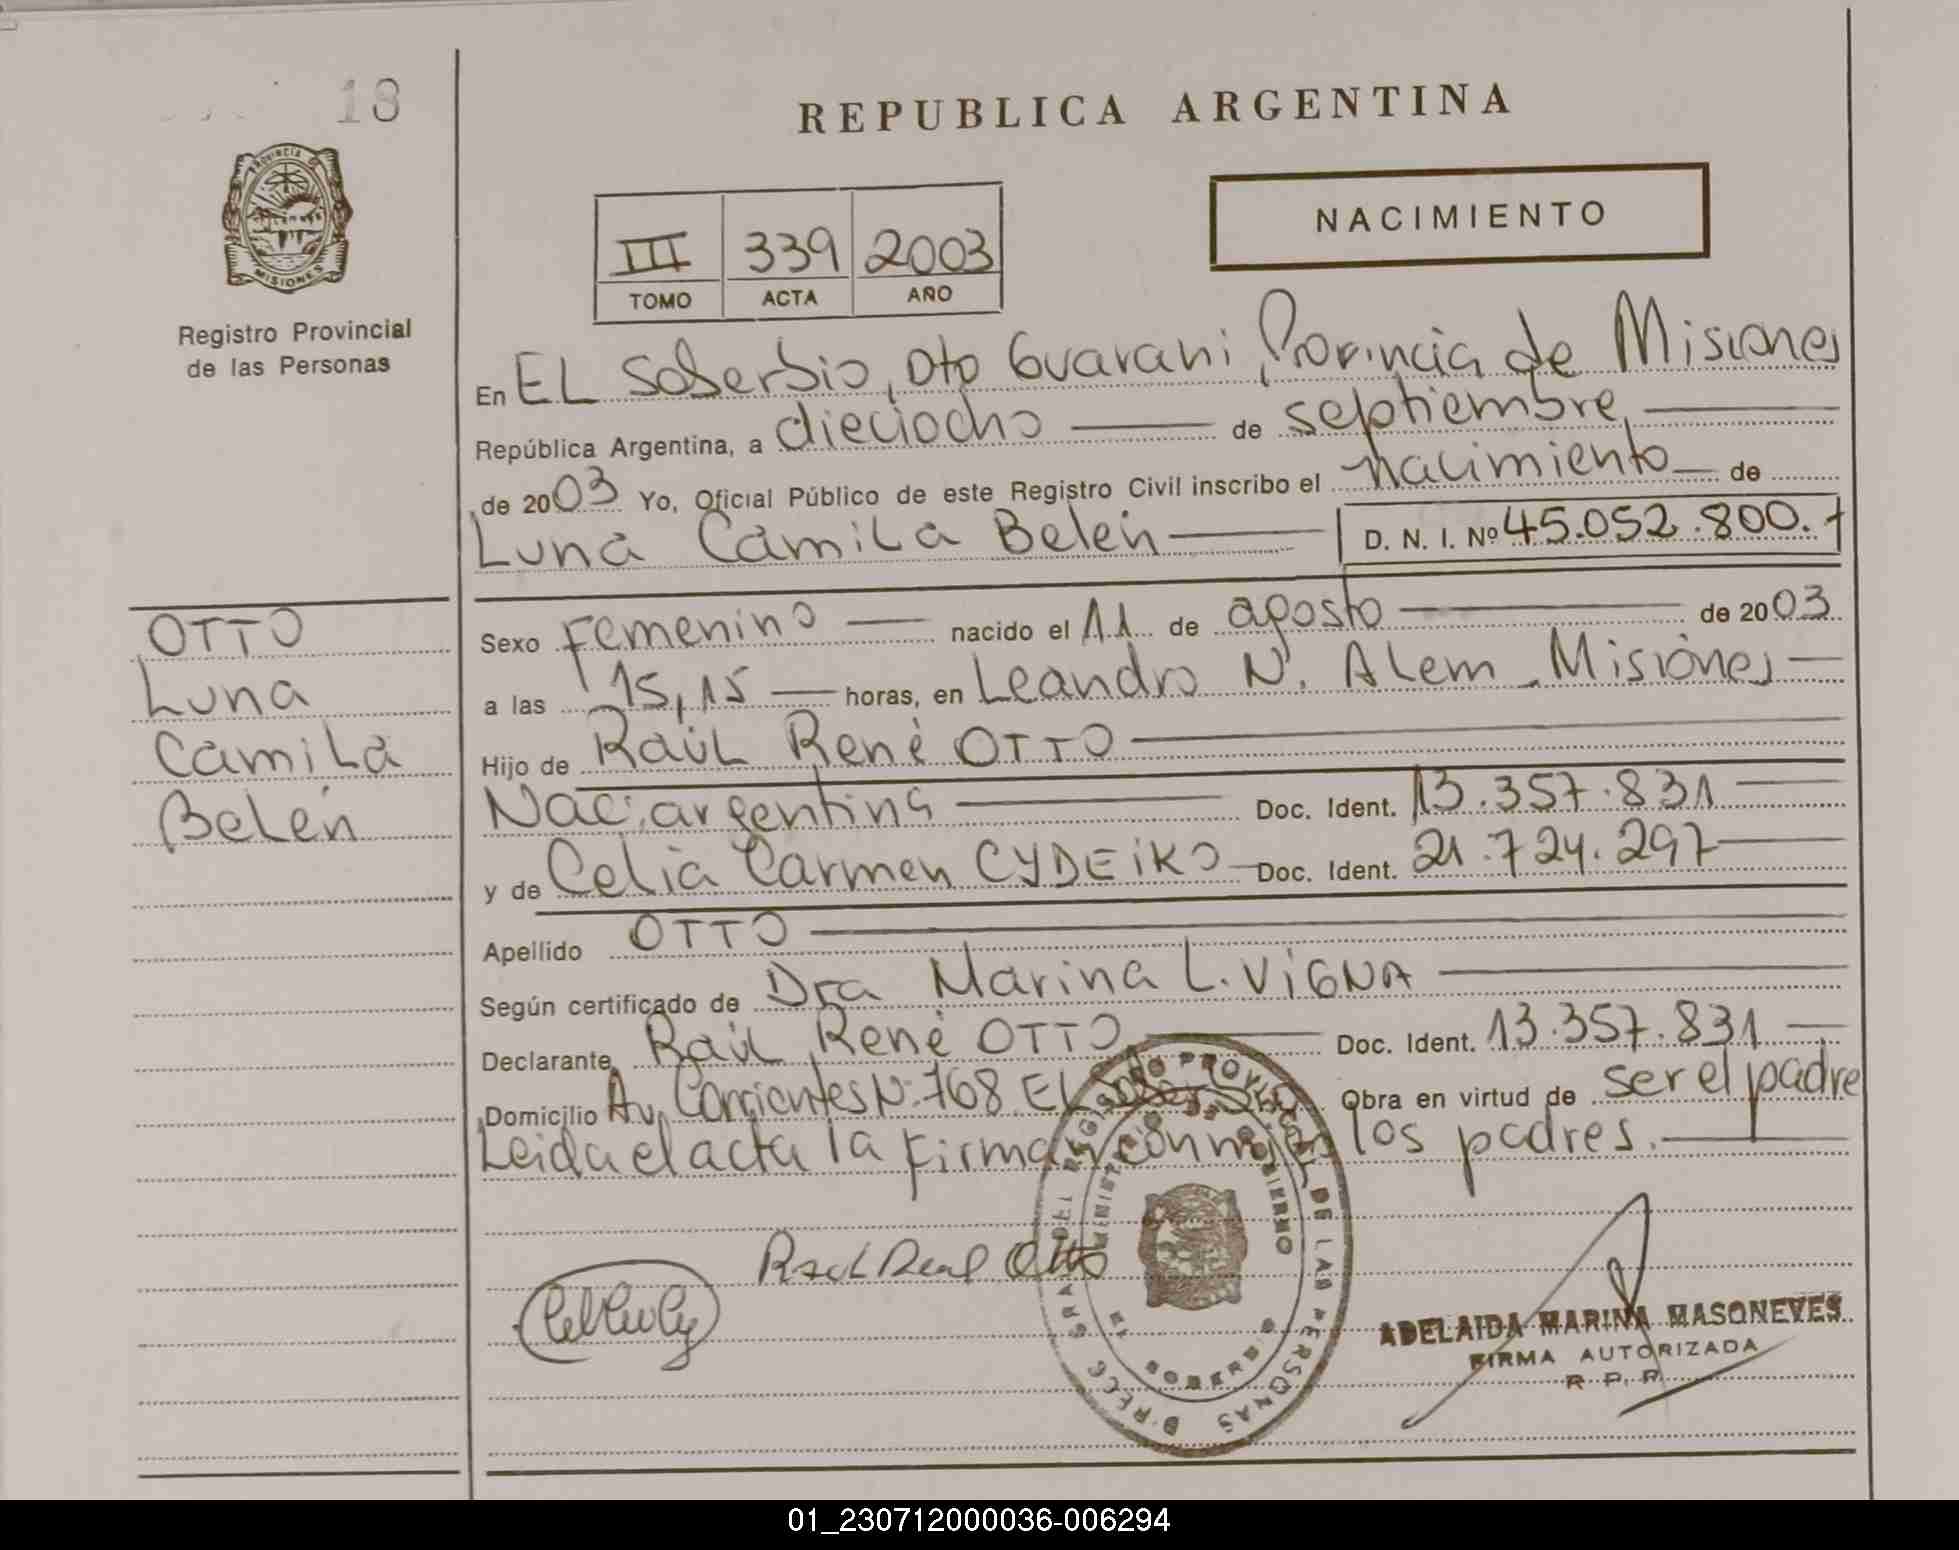 18
PROVINCIA DE
MISIONES
Registro Provincial
de las Personas
OTTO
Luna
Camila
Belén
REPUBLICA ARGENTINA
NACIMIENTO
III 339 2003
TOMO ACTA AÑO
En EL Soberbio, Dto Guarani, Provincia de Misiones
República Argentina, a dieciocho de septiembre
de 2003 Yo, Oficial Público de este Registro Civil inscribo el nacimiento de
Luna Camila Belén D. N. I. Nº 45.052.800.
Sexo Femenino nacido el 11 de agosto de 2003
a las 15,15 horas, en Leandro N. Alem - Misiones
Hijo de Raúl René OTTO
Nac: argentina Doc. Ident. 13.357.831
y de Celia Carmen CYDEIKO Doc. Ident. 21.724.297
Apellido OTTO
Según certificado de Dra Marina L. VIGNA
Declarante Raúl René OTTO Doc. Ident. 13.357.831
Domicilio Av. Corrientes N: 768 EL Soberbio Obra en virtud de ser el padre
Leida el acta la firman conmigo los padres.
Raul René Otto
ADELAIDA MARINA MASONEVES
FIRMA AUTORIZADA
R. P. P.
01_230712000036-006294